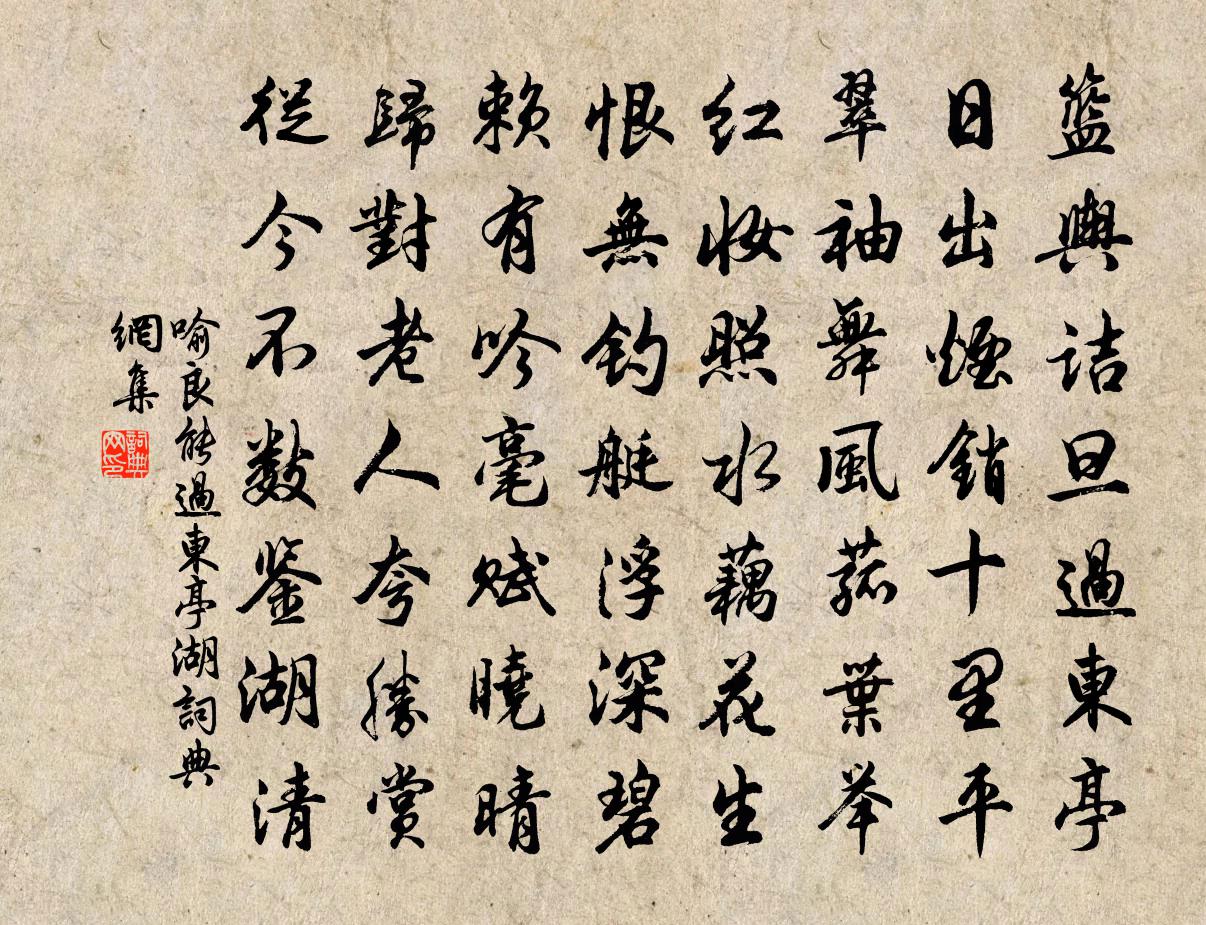 籃輿詰旦過東亭
日出煙銷十里平
翠袖舞風菰葉举
红妆照水藕花生
恨無釣艇浮深碧
赖有吟毫赋曉晴
歸對老人夸勝赏
從今不数鉴湖清
喻良能過東亭湖詞典
網集
詞典
网印